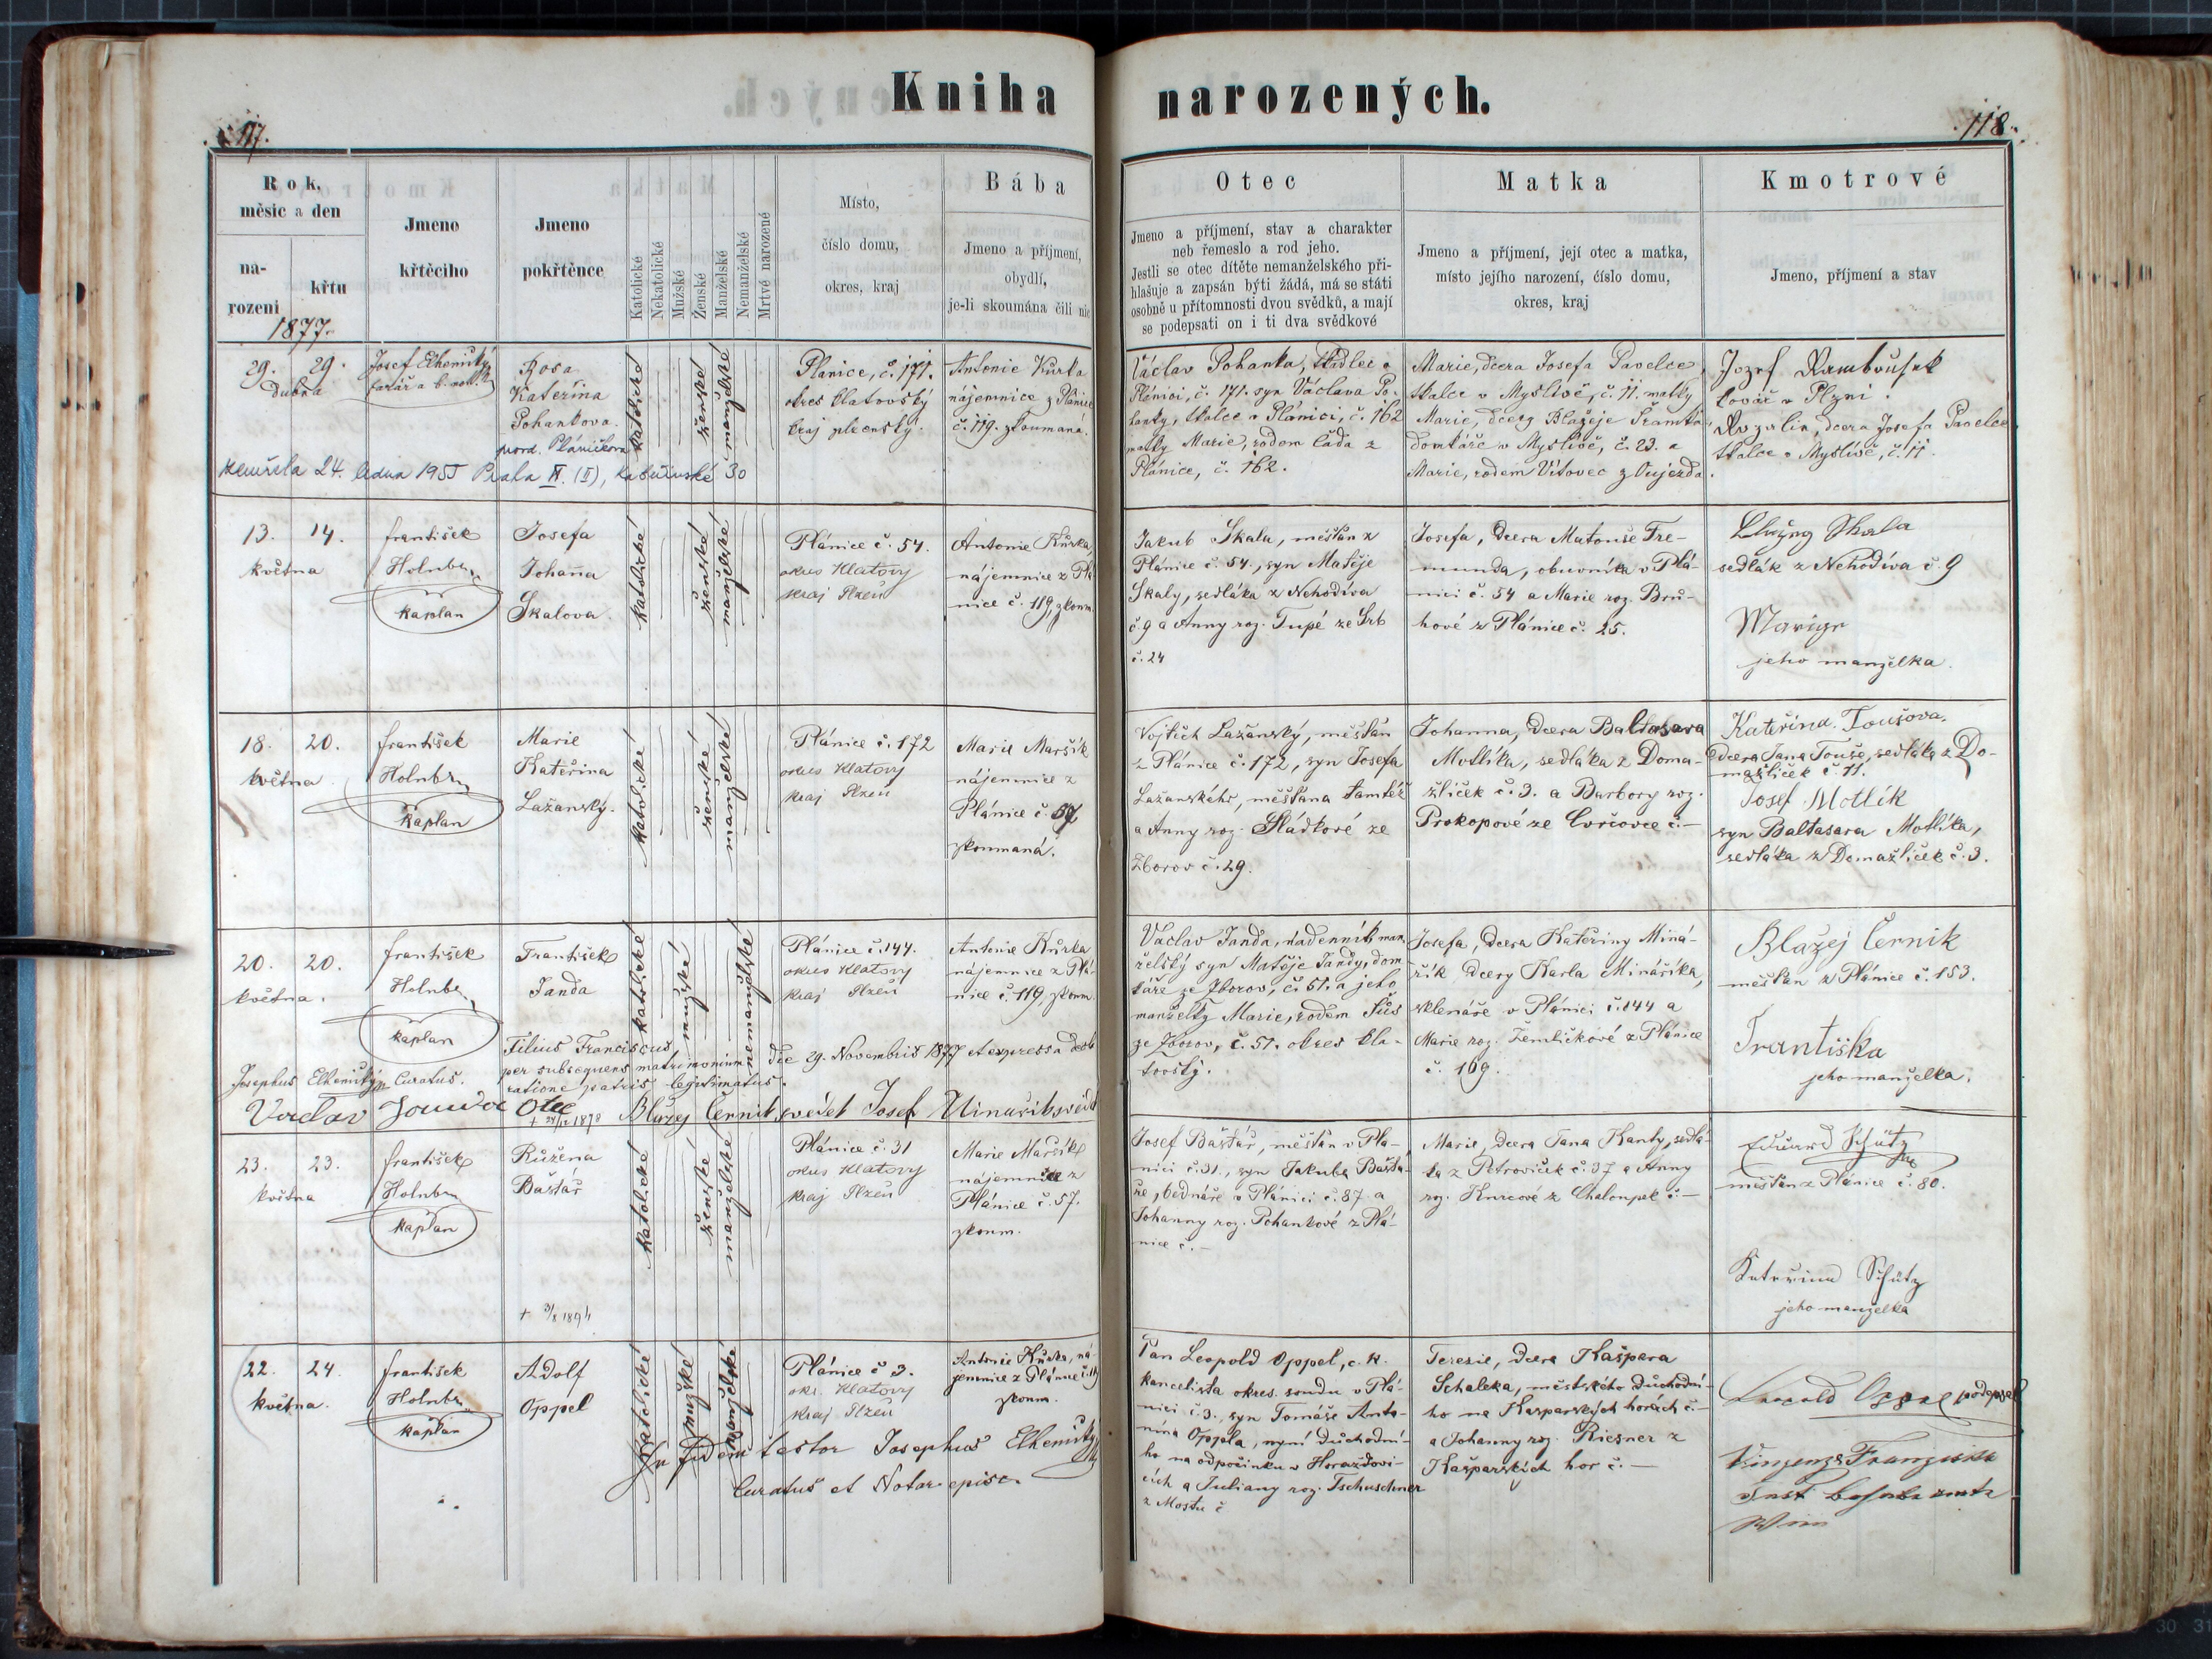 Kniha narozených.
117.
118.
Rok,
měsíc a den
na-
rozeni
křtu
1877.
Jmeno
křtěcího
Jmeno
pokřtěnce
Katolické
Nekatolické
Mužské
Ženské
Manželské
Nemanželské
Mrtvě narozené
Místo,
číslo domu,
okres, kraj
Bába
Jmeno a příjmení,
obydlí,
je-li skoumána čili nic
Otec
Jmeno a příjmení, stav a charakter
neb řemeslo a rod jeho.
Jestli se otec dítěte nemanželského při-
hlašuje a zapsán býti žádá, má se státi
osobně u přítomnosti dvou svědků, a mají
se podepsati on i ti dva svědkové
Matka
Jmeno a příjmení, její otec a matka,
místo jejího narození, číslo domu,
okres, kraj
Kmotrové
Jmeno, příjmení a stav
29. 29.
dubna
Josef Elhenický,
farář a b. not.
Rosa
Kateřina
Pohankova.
katolické
ženské
manželské
Planice, č. 171.
okres klatovský
kraj plzenský.
Antonie Kurka
nájemnice z Plánice
č. 119. zkoumana.
Václav Pohanka, tkadlec v
Plánici, č. 171. syn Václava Po-
hanky, tkalce v Plánici, č. 162
matky Marie, rodem Lada z
Plánice, č. 162.
Marie, dcera Josefa Pavelce,
tkalce v Myslívě, č. 11. matky
Marie, dcery Blažeje Šramka
domkáře v Myslívě, č. 23. a
Marie, rodem Vítovec z Oujezda.
Jozef Rambousek
kovář v Plzni.
Rozalie, dcera Josefa Pavelce
tkalce v Myslívě, č. 11.
zemřela 24. ledna 1955 Praha II. (I), Kateřinská 30
13. 14.
května
František
Holub
kaplan
Josefa
Johana
Skalova.
katolické
ženské
manželské
Plánice č. 54.
okres Klatovy
kraj Plzeň
Antonie Kůrka,
nájemnice z Plá-
nice č. 119, zkoum.
Jakub Skala, měšťan z
Plánice č. 54., syn Matěje
Skaly, sedláka z Nehodíva
č. 9 a Anny roz. Tupé ze Srb
č. 24
Josefa, dcera Matouše Fre-
munda, obuvníka v Plá-
nici č. 54 a Marie roz. Brů-
hové z Plánice č. 25.
Skala
sedlák z Nehodíva č. 9
Marie
jeho manželka.
18. 20.
května
František
Holub
kaplan
Marie
Kateřina
Lažanský.
katolické
ženské
manželské
Plánice č. 172
okres Klatovy
kraj Plzeň
Marie Maršík
nájemnice z
Plánice č. 57
zkoumaná.
Vojtěch Lažanský, měšťan
z Plánice č. 172, syn Josefa
Lažanského, měšťana tamtéž
a Anny roz. Sládkové ze
Zborov č. 29.
Johanna, dcera Baltasara
Motlíka, sedláka z Doma-
žliček č. 3. a Barbory roz.
Prokopové ze Cvrčovce č. –
Kateřina Toušova.
dcera Jana Touše, sedláka z Do-
mažliček č. 11.
Josef Motlík
syn Baltasara Motlíka,
sedláka z Domažliček č. 3.
20. 20.
května.
František
Holub
kaplan
František
Janda
katolické
mužské
nemanželské
Plánice č. 144.
okres Klatovy
kraj Plzeň
Antonie Kůrka
nájemnice z Plá-
nice č. 119, zkoum.
Václav Janda, nádenník, man-
želský syn Matěje Jandy, dom-
káře ze Zborov, č. 51. a jeho
manželky Marie, rodem
ze Zborov, č. 51. okres kla-
tovský.
Josefa, dcera Kateřiny Miná-
řík dcery Karla Mináříka,
sklenáře v Plánici č. 144 a
Marie roz. Žemličkové z Plánice
č. 169.
Blažej Černík
měšťan z Plánice č. 153.
Františka
jeho manželka.
Filius Franciscus
per subsequens matrimonium die 29. Novembris 1877 et expressa
Josephus Elhenický Curatus.
ratione patris legitimatus.
Vaclav Janda Otec Blažej Černík svedek Josef Minařik
23. 23.
května
František
Holub
kaplan
Růžena
Baštář
katolické
ženské
manželské
Plánice č. 31
okres Klatovy
kraj Plzeň
Marie Maršík
nájemnice z
Plánice č. 57.
zkoum.
Josef Baštář, měšťan v Plá-
nici č. 31., syn Jakuba Baštá-
ře, bednáře v Plánici č. 87 a
Johanny roz. Pohankové z Plá-
nice č. –
Marie, dcera Jana Kanty, sedlá-
ka z Petroviček č. 37 a Anny
roz. Kurcové z Chaloupek č. –
Eduard Schütz
měšťan z Plánice č. 80.
Kateřina Schütz
jeho manzelka
22. 24.
května.
František
Holub
kaplan
Adolf
Oppel
katolické
mužské
manželské
Plánice č 3.
okr. Klatovy
kraj Plzeň
Antonie Kůrka, ná-
jemnice z Plánice č. 119
zkoum.
Pan Leopold Oppel, c. k.
kancelista okres. soudu v Plá-
nici č. 3., syn Tomáše Anto-
nína Oppela, nyní důchodní-
ho na odpočinku v Horažďovi-
cích a Juliany roz. Tschuschner
z Mostu č
Terezie, dcera Kašpara
Schaleka, městského důchodní-
ho na Kasparských horách č. –
a Johanny roz. Riesner z
Kašparských hor č. –
Leopold Oppel podepsal
In fidem testor Josephus Elhenický
Curatus et Notar. episc.